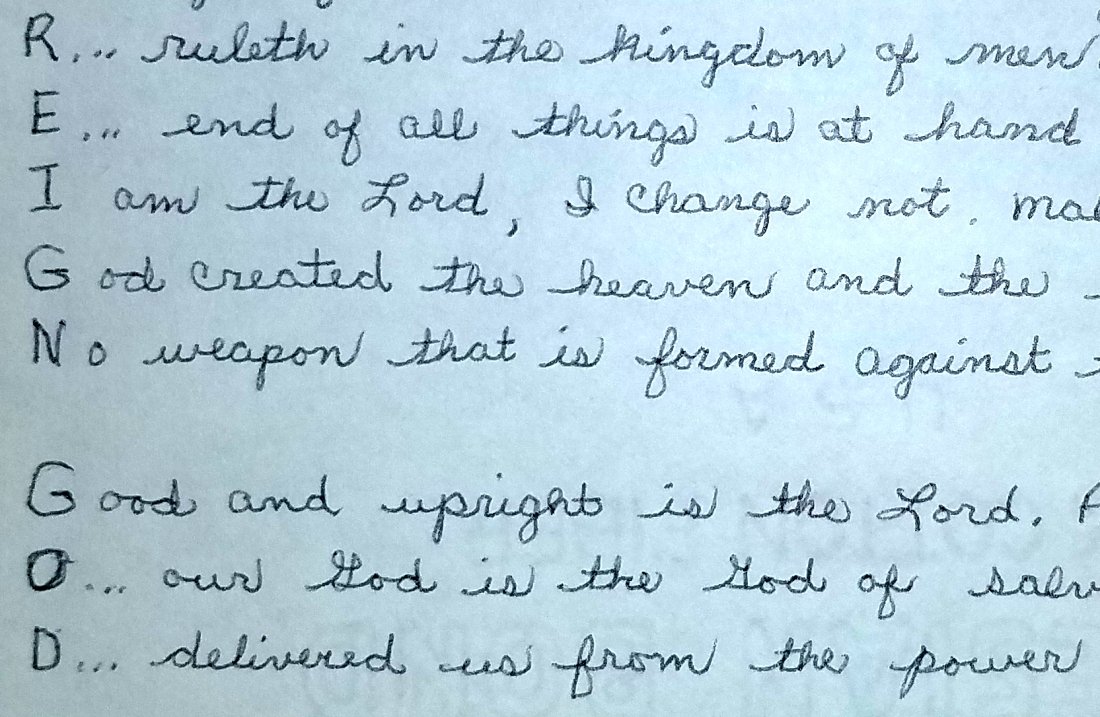 R... ruleth in the kingdom of men
E... end of all things is at hand
I am the Lord, I change not. mal
God created the heaven and the
No weapon that is formed against
Good and upright is the Lord.
O... our God is the God of salv
D... delivered us from the power